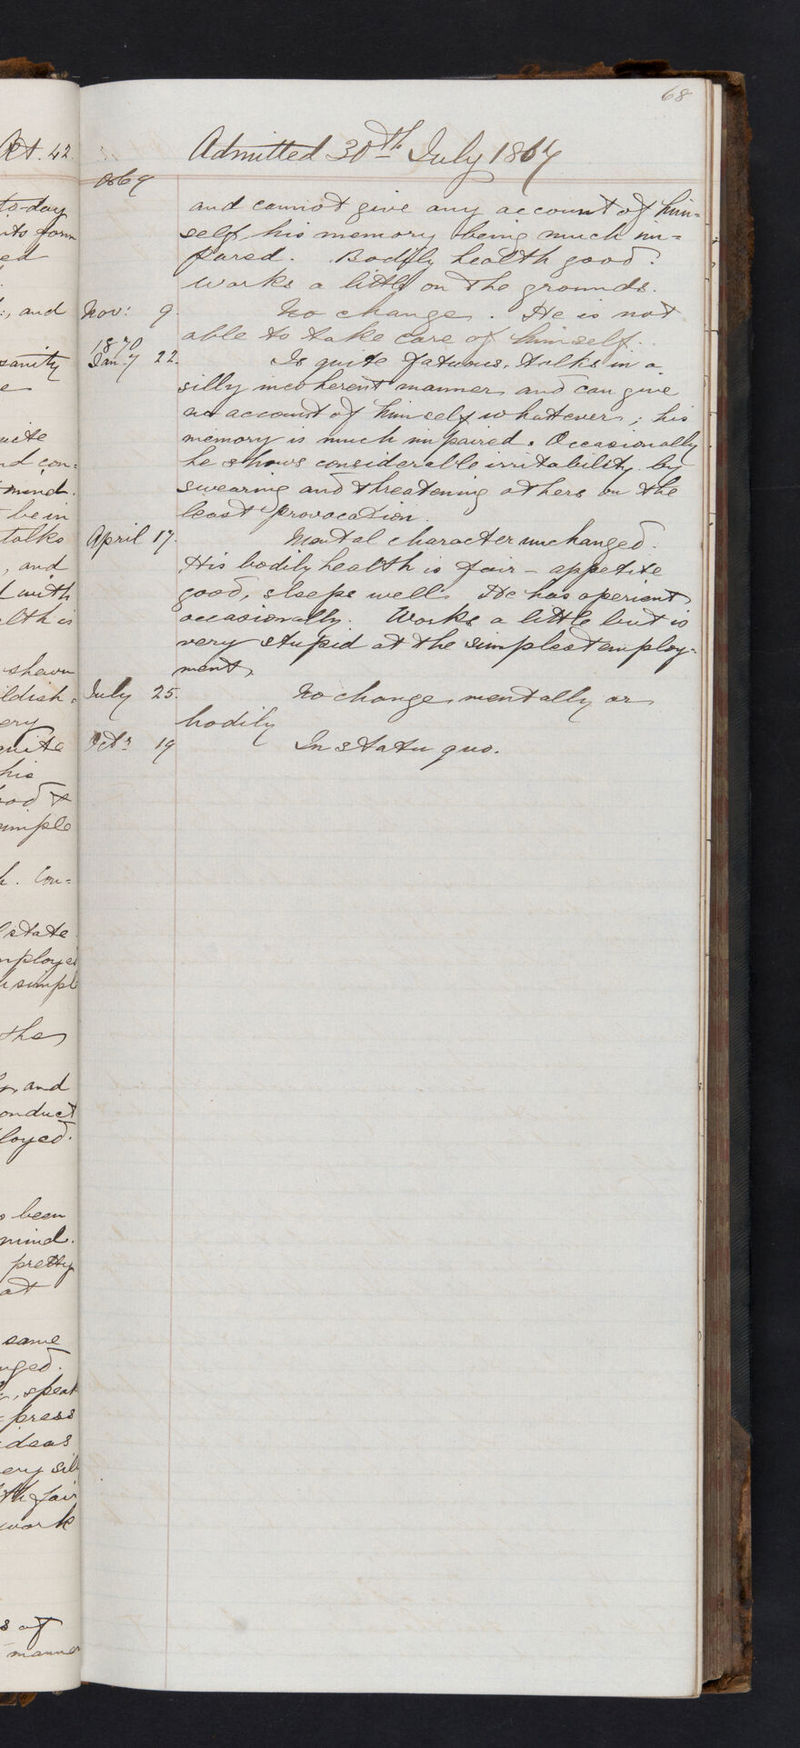 68
Admitted 30th July 1867
1869
and cannot give any account of him=
self his memory being much im=
pared. Bodily health good.
Works a little on the grounds.
Nov: 9. No change. He is not
able to take care of himself.
1870
Jany 22. Is quite fatuous, talks in a
silly incoherent manner and can give
no account of himself whatever; his
memory is much impaired. Occasionally
he shows considerable irritability by
swearing and threatening others on the
least provocation.
April 17. Mental character unchanged.
His bodily health is fair - appetite
good, sleeps well. He has aperient
occasionally. Works a little but is
very stupid at the simplest employ=
ment.
July 25. No change mentally or
bodily
Octr 19 In statu quo.
Æt. 42
to-day
its form
ed
, and
sanity
e
uite
nd con=
mind.
be in
talks
, and
with
lth is
shewn
ldish
ery
quite
his
ood &
imple
h. Con=
state
mploye
simpl
the
and
onduct
loyed.
been
mind.
pretty
at
same
nged.
, speak
press
ideas
ery sil
th fair
work
s of
manner